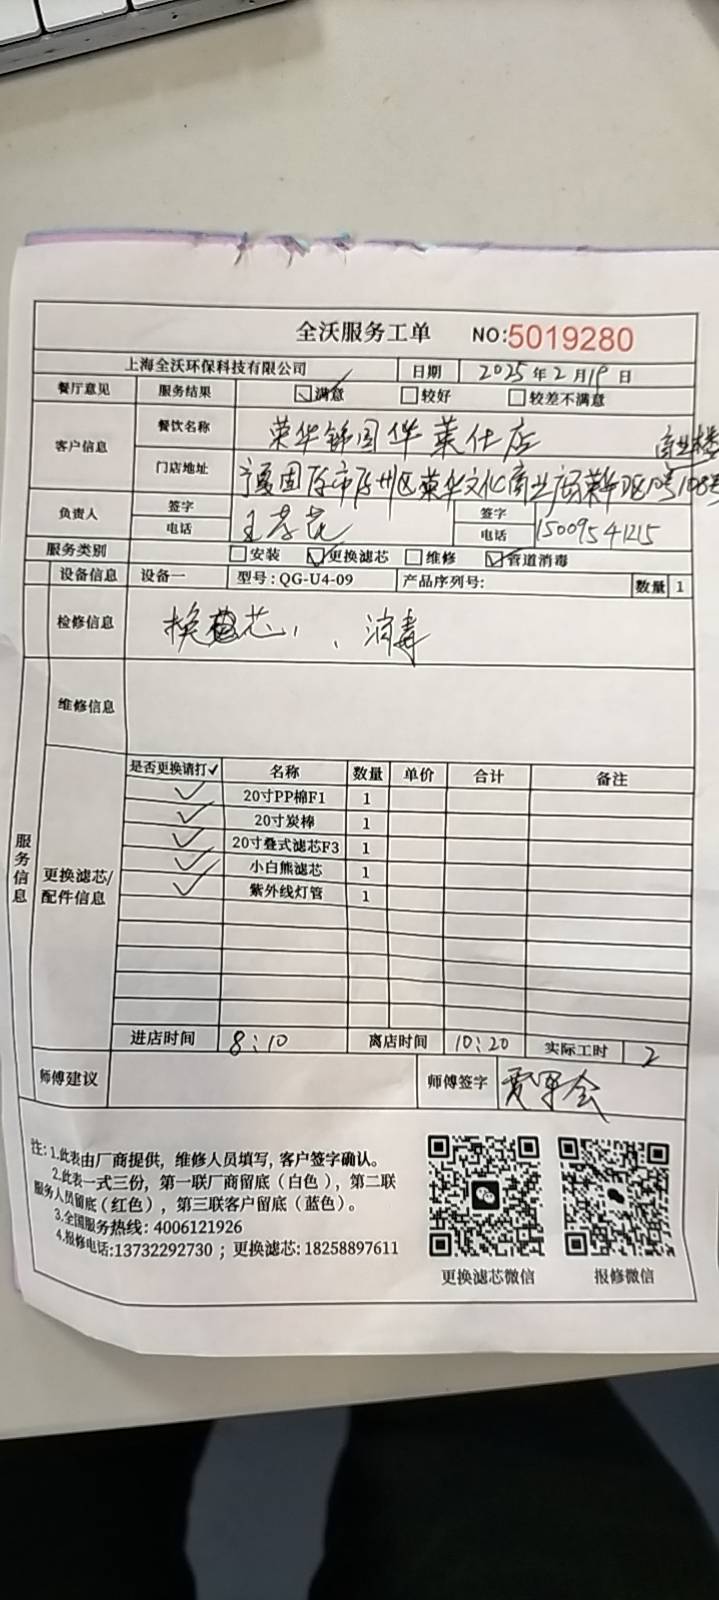 全沃服务工单 NO:5019280
上海全沃环保科技有限公司 日期 2025年2月19日
餐厅意见 服务结果 ☑满意 □较好 □较差不满意
客户信息 餐饮名称 荣华锦园华莱仕店
商业楼
门店地址 宁夏固原市原州区荣华文化商业广场 10号108号
负责人 签字 签字
电话 电话 15009541215
服务类别 □安装 ☑更换滤芯 □维修 ☑管道消毒
设备信息 设备一 型号:QG-U4-09 产品序列号: 数量 1
检修信息 换滤芯, 、消毒
维修信息
服务信息
更换滤芯/配件信息
是否更换请打✓ 名称 数量 单价 合计 备注
✓ 20寸PP棉F1 1
✓ 20寸炭棒 1
✓ 20寸叠式滤芯F3 1
✓ 小白熊滤芯 1
✓ 紫外线灯管 1
进店时间 8:10 离店时间 10:20 实际工时 2
师傅建议 师傅签字
注: 1.此表由厂商提供，维修人员填写, 客户签字确认。
2.此表一式三份，第一联厂商留底（白色），第二联
服务人员留底（红色），第三联客户留底（蓝色）。
3.全国服务热线: 4006121926
4.报修电话:13732292730；更换滤芯: 18258897611
更换滤芯微信 报修微信